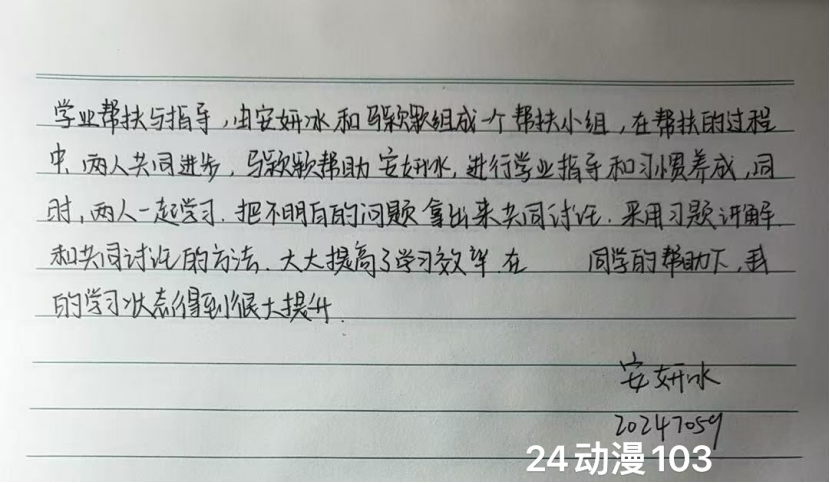 学业帮扶与指导,由安妍冰和马颖颖组成一个帮扶小组,在帮扶的过程
中,两人共同进步,马颖颖帮助安妍冰,进行学业指导和习惯养成,同
时,两人一起学习.把不明白的问题拿出来共同讨论.采用习题讲解
和共同讨论的方法.大大提高了学习效率.在 同学的帮助下,我
的学习状态得到很大提升.
安妍冰
20247059
24动漫103